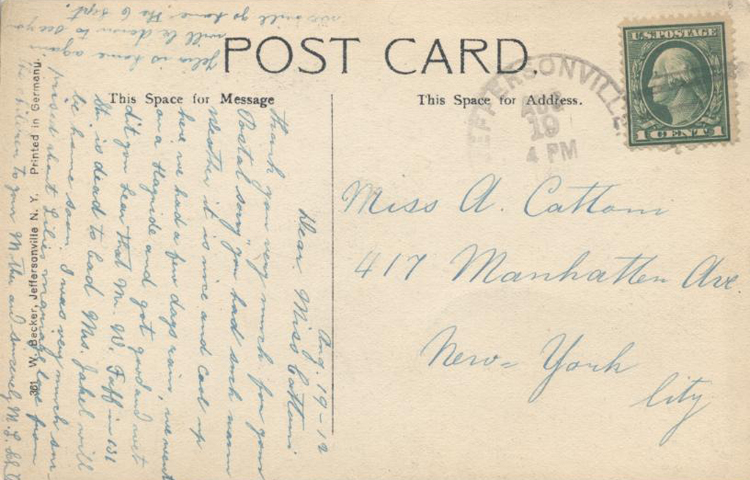 POST CARD.
This Space for Message
This Space for Address.
U.S. POSTAGE
1 CENT 1
JEFFERSONVILLE
AUG
19
4 PM
Miss A. Cattom
417 Manhatten Ave.
New-York
City
Aug. 19-12
Dear Miss Cattom
Thank you very much for your
Postal sorry you had such warm
Weather it is nice and cool up
here we had a few days rain, we went
on a Hayride and got good and wet
did you hear that Mr. W. Faff in 131
St. is dead to bad Mrs. Jakel will
be home soon. I was very much sur-
prised about Lilis marriage love from
the children to your Mother and sincerely M. L.
is home again
will be down to see you
will go home the 6 Sept.
361 W. Becker, Jeffersonville N. Y. Printed in Germany.